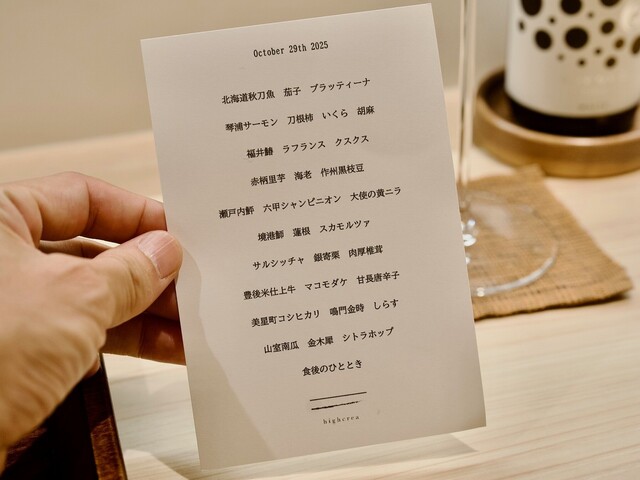 October 29th 2025
北海道秋刀魚 茄子 ブラッティーナ
琴浦サーモン 刀根柿 いくら 胡麻
福井鰆 ラフランス クスクス
赤柄里芋 海老 作州黒枝豆
瀬戸内鮃 六甲シャンピニオン 大使の黄ニラ
境港鰤 蓮根 スカモルツァ
サルシッチャ 銀寄栗 肉厚椎茸
豊後米仕上牛 マコモダケ 甘長唐辛子
美星町コシヒカリ 鳴門金時 しらす
山室南瓜 金木犀 シトラホップ
食後のひととき
highcrea